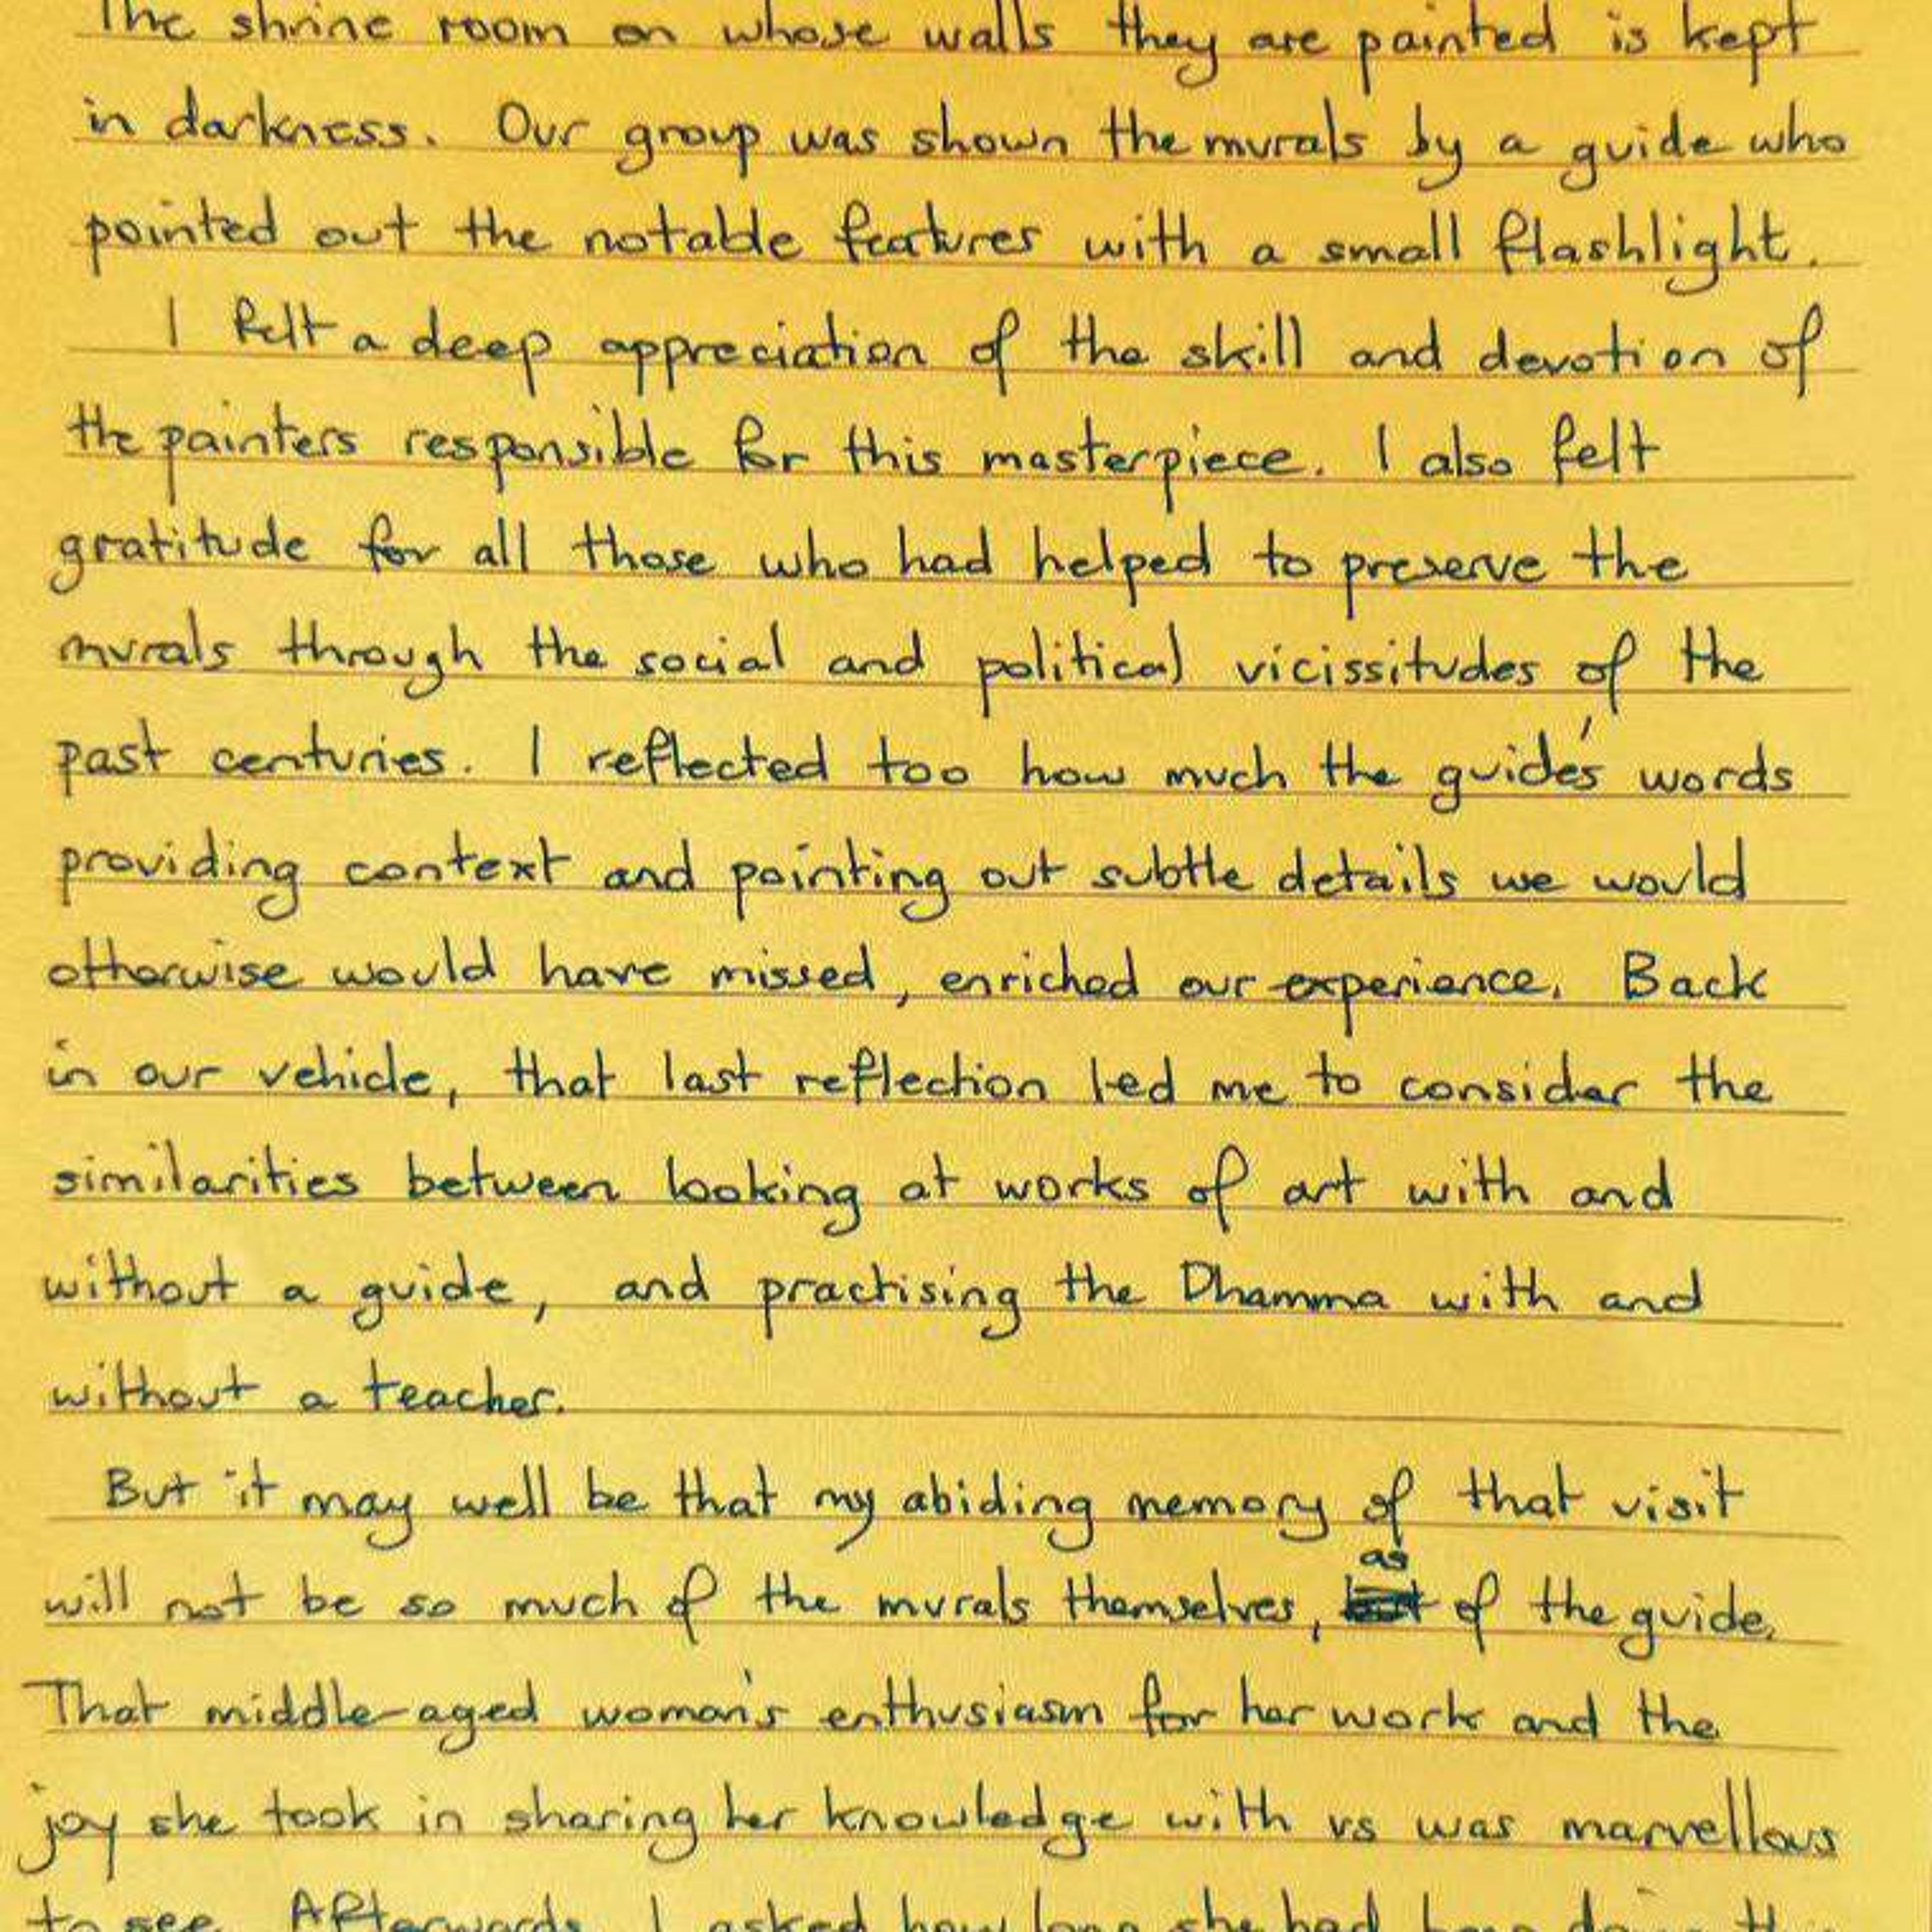 The shrine room on whose walls they are painted is kept
in darkness. Our group was shown the murals by a guide who
pointed out the notable features with a small flashlight.
I felt a deep appreciation of the skill and devotion of
the painters responsible for this masterpiece. I also felt
gratitude for all those who had helped to preserve the
murals through the social and political vicissitudes of the
past centuries. I reflected too how much the guide's words
providing context and pointing out subtle details we would
otherwise would have missed, enriched our experience. Back
in our vehicle, that last reflection led me to consider the
similarities between looking at works of art with and
without a guide, and practising the Dhamma with and
without a teacher.
But it may well be that my abiding memory of that visit
will not be so much of the murals themselves, as of the guide.
That middle-aged woman's enthusiasm for her work and the
joy she took in sharing her knowledge with us was marvellous
to see. Afterwards, I asked how long she had been doing